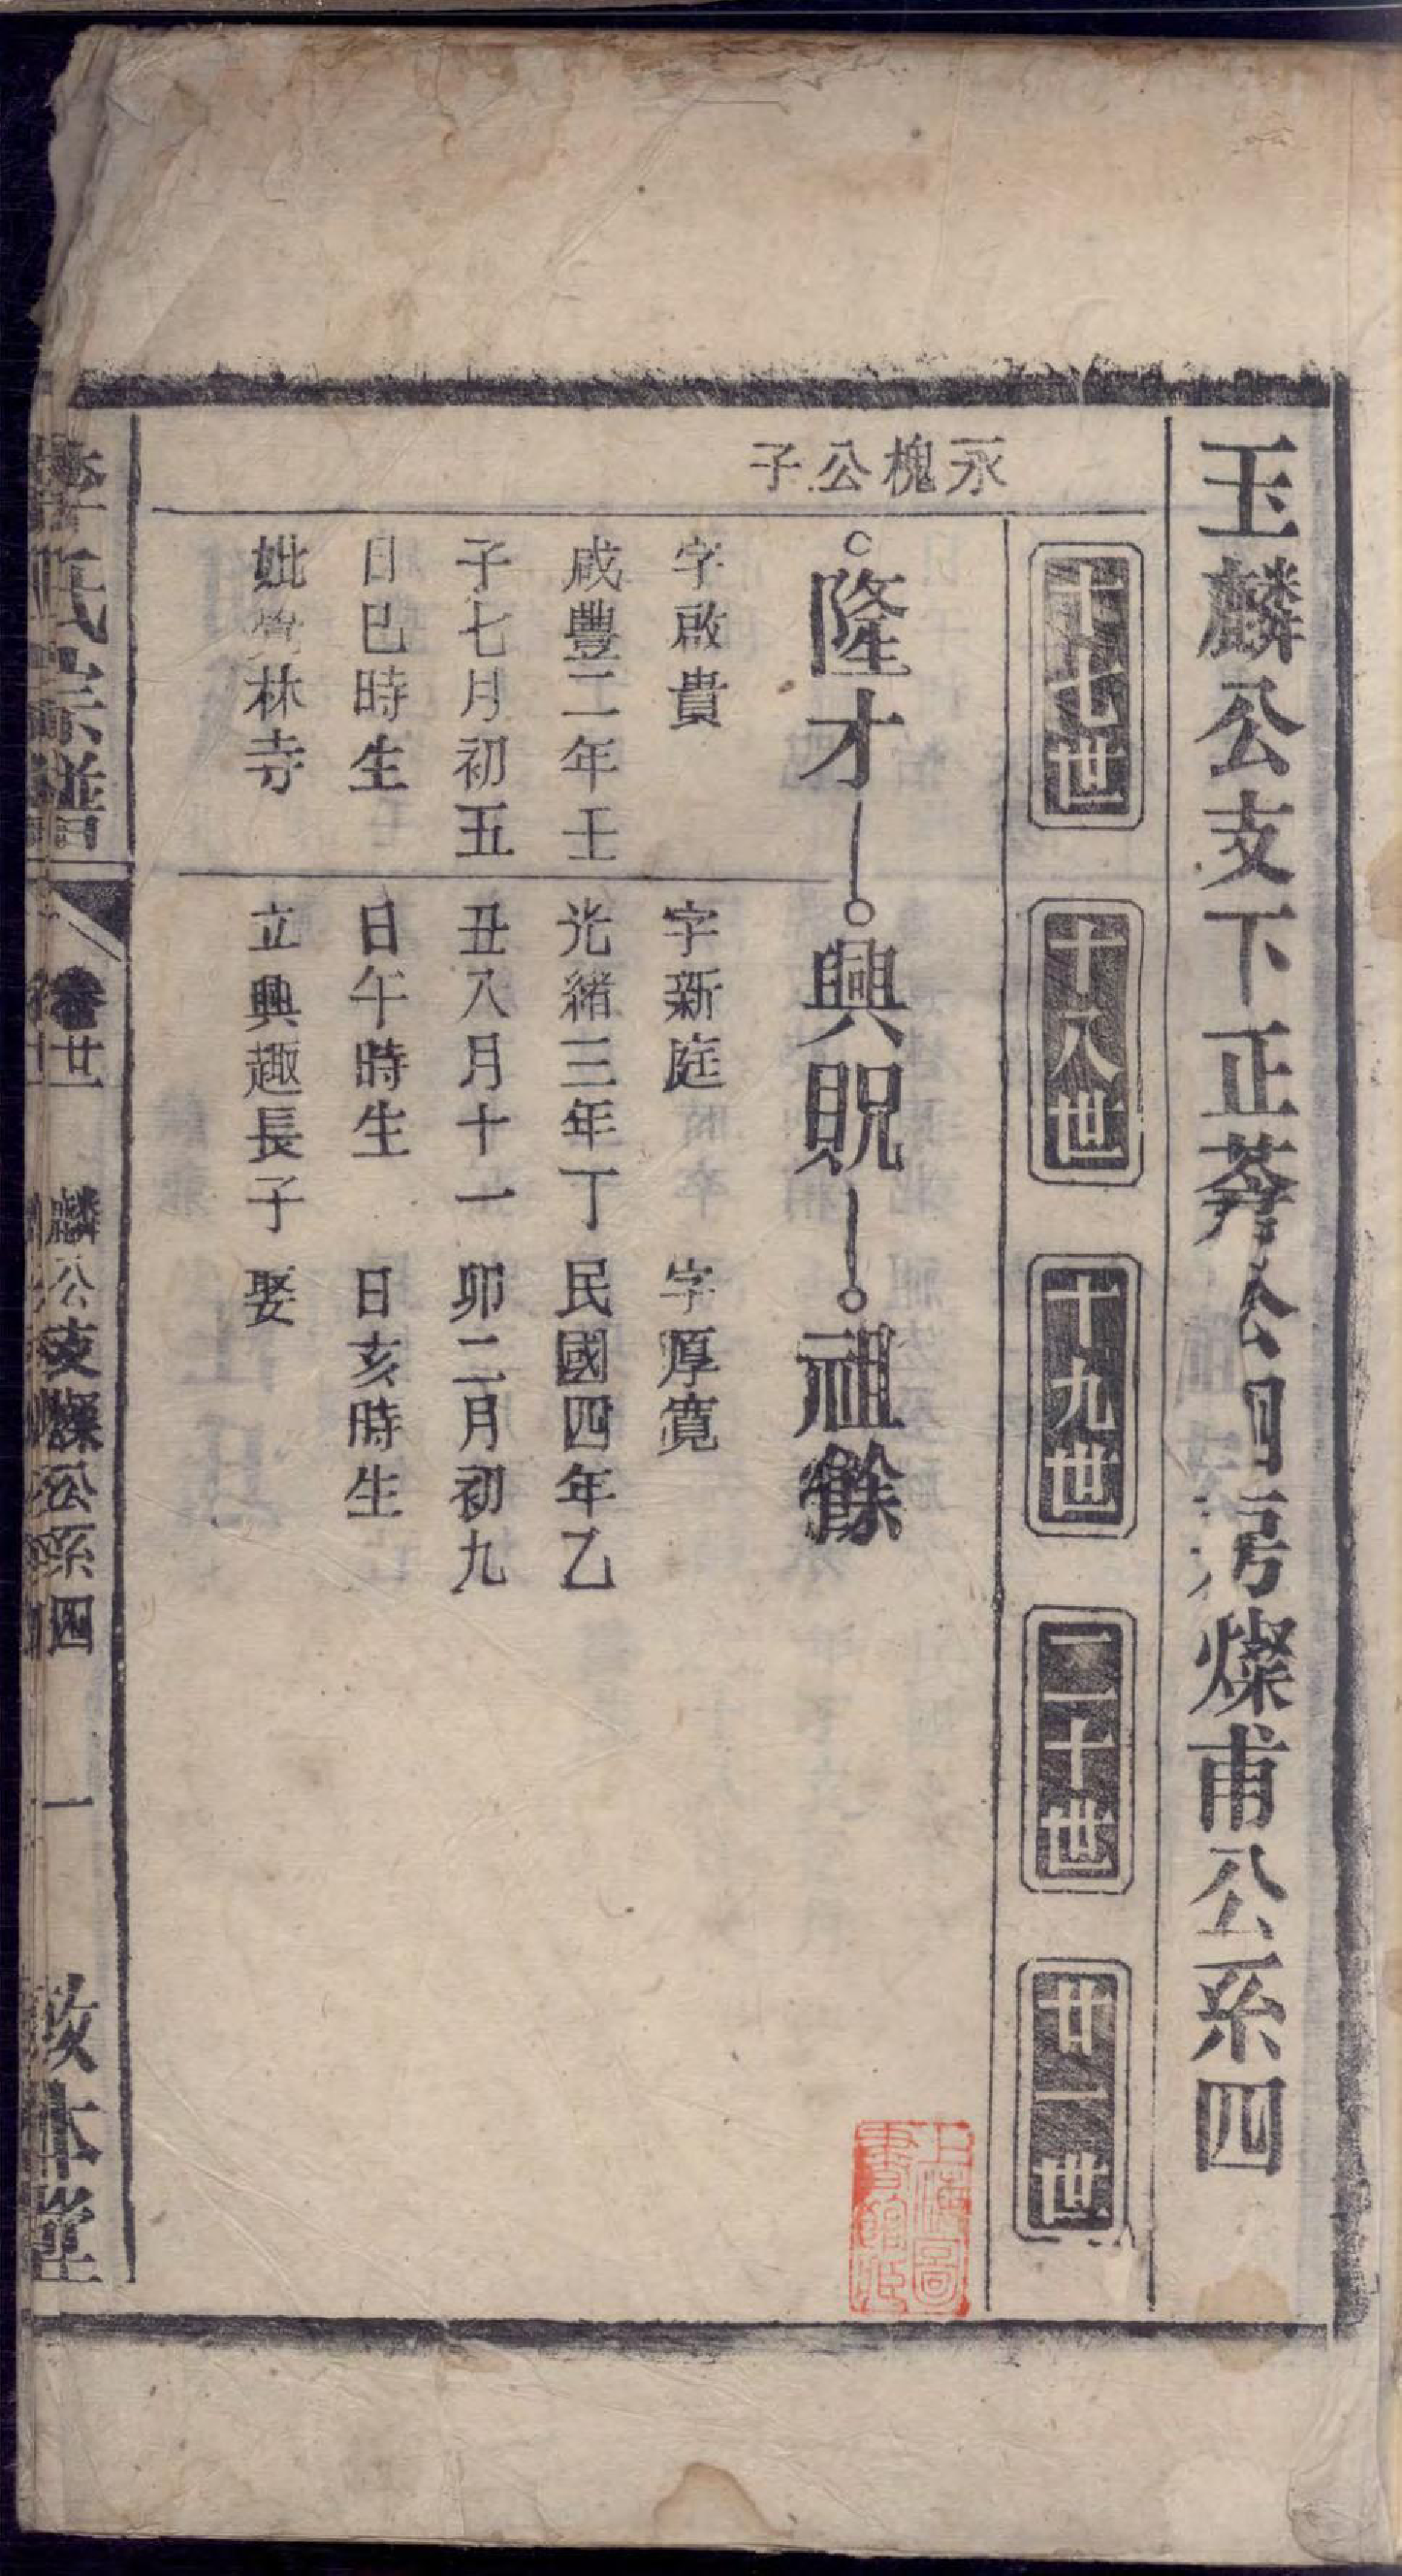 玉麟公支下正莽公四房燦甫公系四
十七世
十八世
十九世
二十世
廿一世
永槐公子
隆才
興貺
祖餘
字啟貴
咸豐二年壬
子七月初五
日巳時生
妣 林寺
字新庭
光緒三年丁
丑八月十一
日午時生
立興趣長子
字厚寬
民國四年乙
卯二月初九
日亥時生
娶
李氏宗譜
卷廿
麟公支燦公系四
一
敦本堂
上海圖書館藏